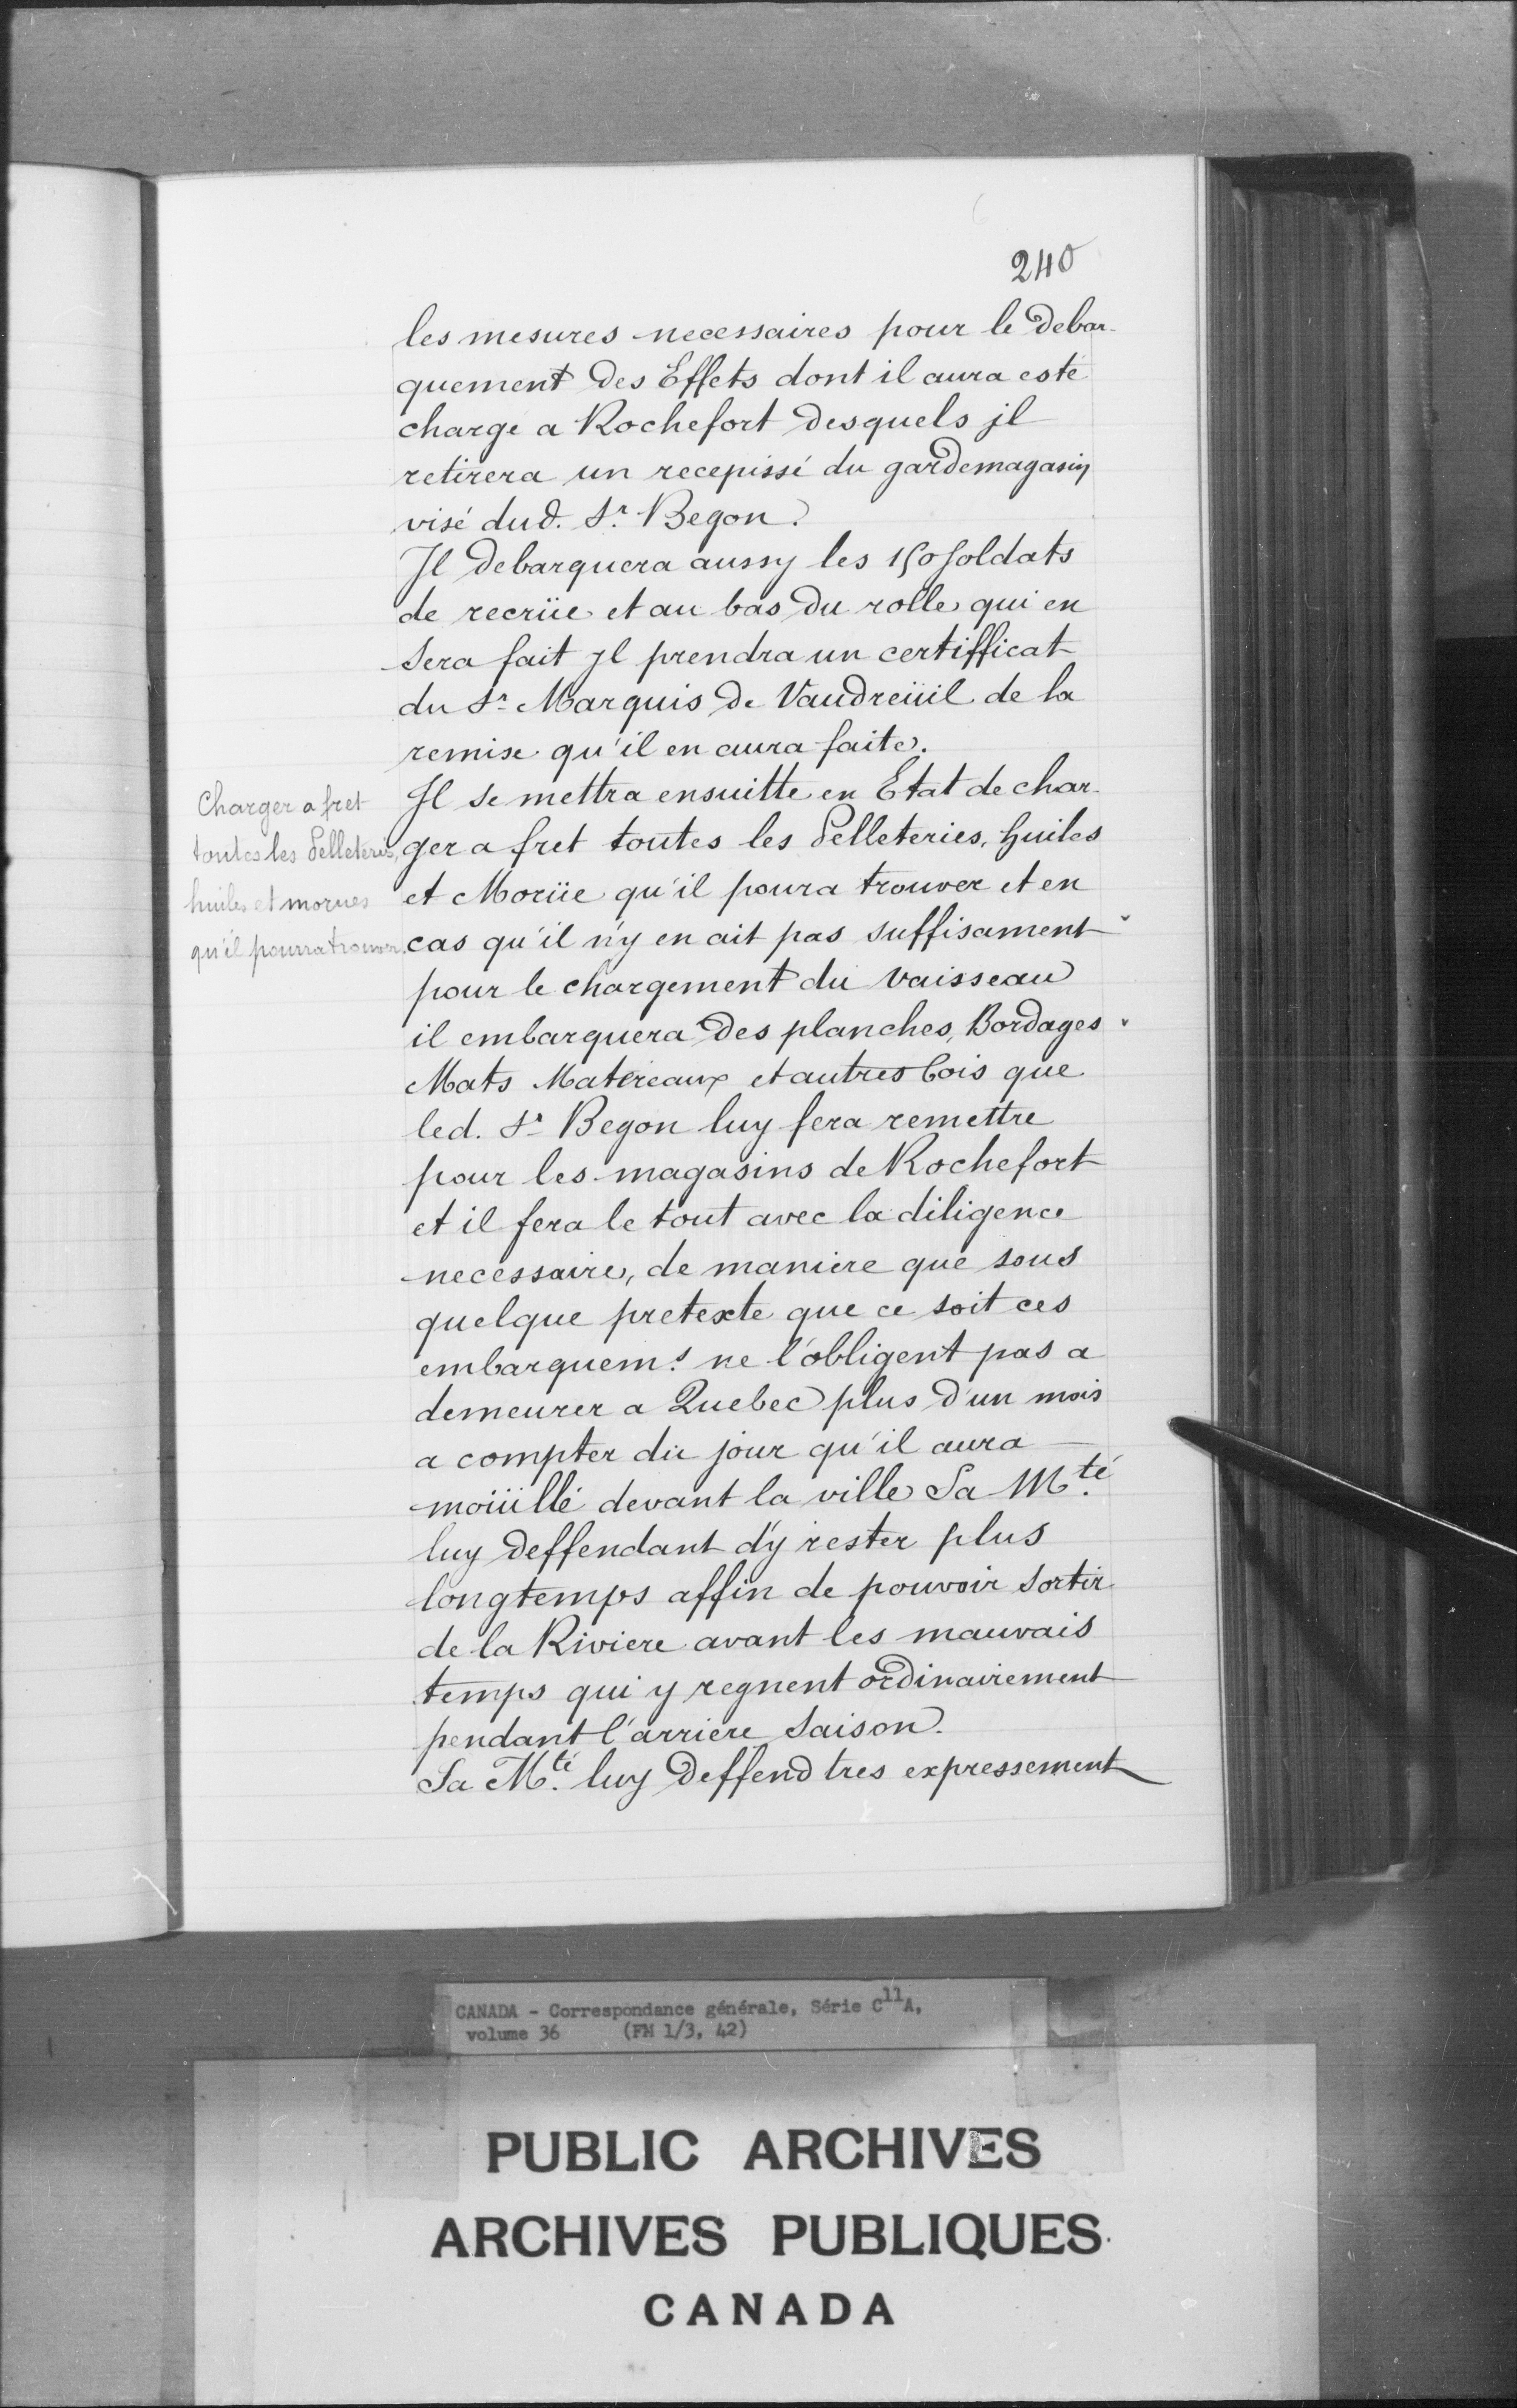 240
les mesures necessaires pour le debar-
quement des Effets dont il aura esté
chargé a Rochefort desquels jl
retirera un recepissé du gardemagasin
visé dud. Sr. Begon.
Jl debarquera aussy les 150 soldats
de recrüe et au bas du rolle qui en
sera fait jl prendra un certifficat
du Sr. Marquis de Vaudreüil de la
remise qu'il en aura faite.
Jl se mettra ensuitte en Etat de char-
ger a fret toutes les Pelleteries, huiles
et Morüe qu'il poura trouver et en
cas qu'il n'y en ait pas suffisament
pour le chargement du vaisseau
il embarquera des planches, Bordages
Mats Matereaux et autres bois que
led. Sr. Begon luy fera remettre
pour les magasins de Rochefort
et il fera le tout avec la diligence
necessaire, de maniere que sous
quelque pretexte que ce soit ces
embarquemt. ne l'obligent pas a
demeurer a Quebec plus d'un mois
a compter du jour qu'il aura
moüillé devant la ville Sa Mté.
luy deffendant d'y rester plus
longtemps affin de pouvoir sortir
de la Riviere avant les mauvais
temps qui y regnent ordinairement
pendant l'arriere saison.
Sa Mté. luy deffend tres expressement
Charger a fret
toutes les Pelleteries,
huiles et morues
qu'il pourra trouver.
CANADA - Correspondance générale, Série C11A,
volume 36 (FM 1/3, 42)
PUBLIC ARCHIVES
ARCHIVES PUBLIQUES
CANADA